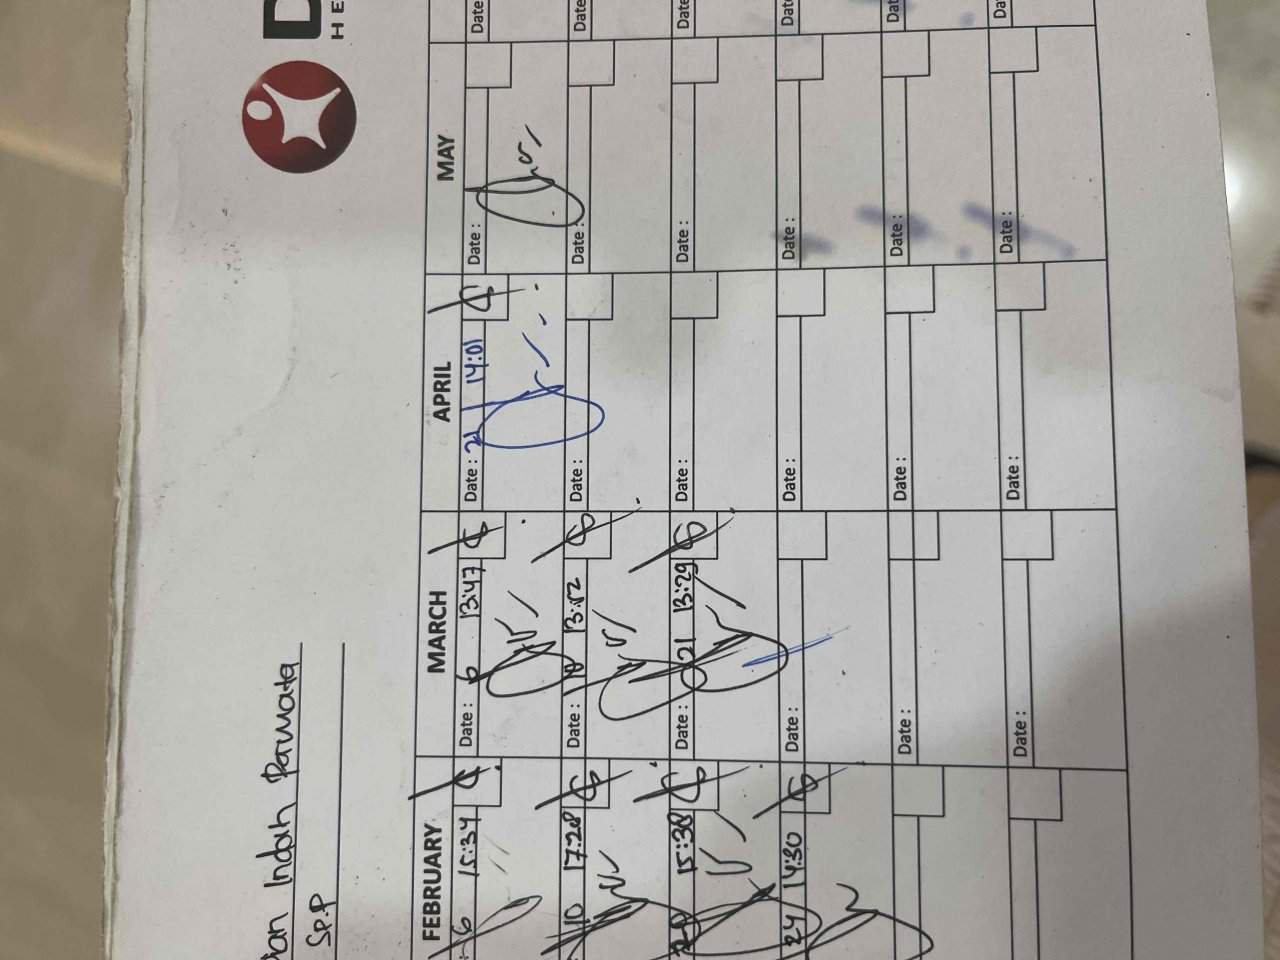 D
HE
Indah Permata
Sp.P
FEBRUARY
MARCH
APRIL
MAY
6 15:34
Date : 6 13:47
Date : 21 14:01
Date :
Date
10 17:28
Date :
Date :
Date :
Date
20 15:38
Date : 21 13:29
Date :
Date :
Date
24 14:30
Date :
Date :
Date :
Dat
Date :
Date :
Date :
Dat
Date :
Date :
Date :
Da